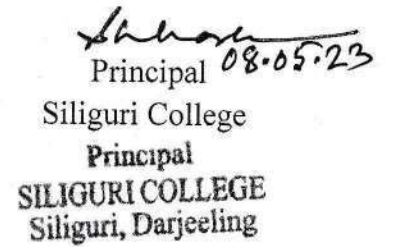 08.05.23
Principal
Siliguri College
Principal
SILIGURI COLLEGE
Siliguri, Darjeeling